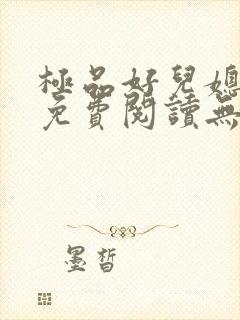 極品好兒媳
免費閱讀無
墨皙